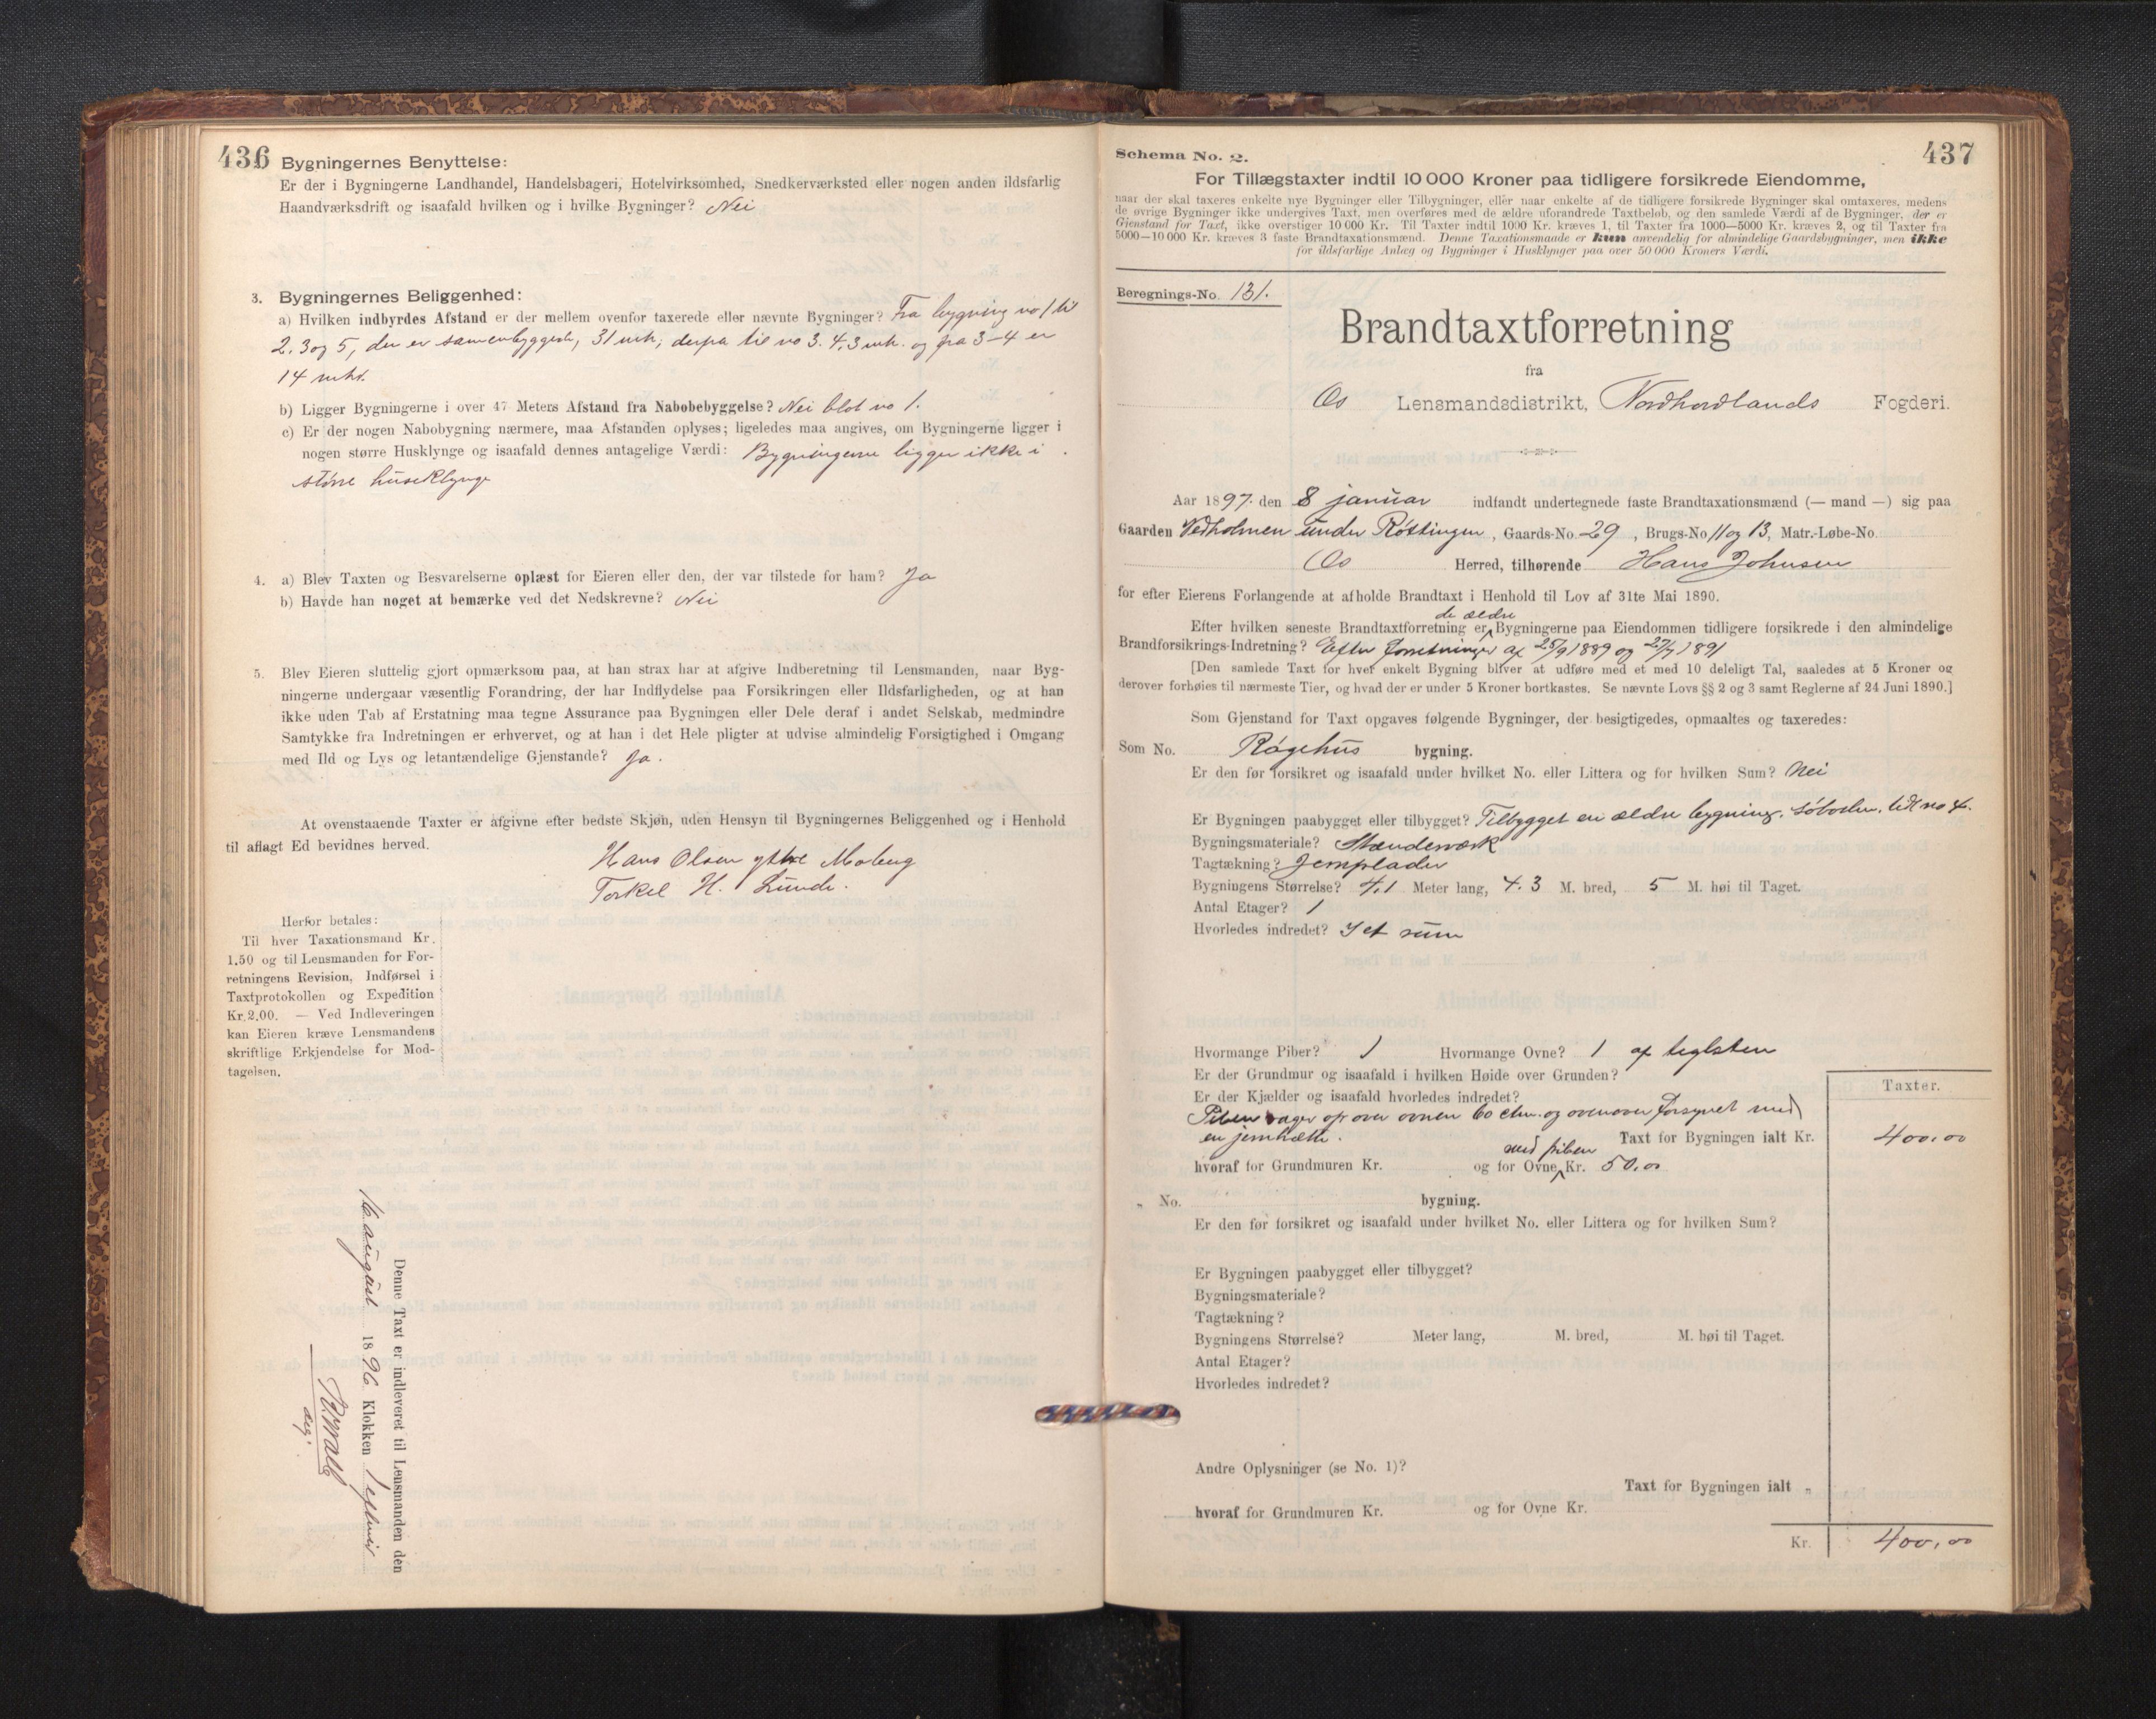 436
Bygningernes Benyttelse:
Er der i Bygningerne Landhandel, Handelsbageri, Hotelvirksomhed, Snedkerværksted eller nogen anden ildsfarlig
Haandværksdrift og isaafald hvilken og i hvilke Bygninger? Nei
3. Bygningernes Beliggenhed:
a) Hvilken indbyrdes Afstand er der mellem ovenfor taxerede eller nævnte Bygninger? Fra bygning no 1 til
2. 3 og 5, der er samenbygget, 31 mtr, derpa til no 3. 4,3 mtr. og fra 3-4 er
14 mtr.
b) Ligger Bygningerne i over 47 Meters Afstand fra Nabobebyggelse? Nei blot no 1.
c) Er der nogen Nabobygning nærmere, maa Afstanden oplyses; ligeledes maa angives, om Bygningerne ligger i
nogen større Husklynge og isaafald dennes antagelige Værdi: Bygningerne ligger ikke i
større huseklynge
4. a) Blev Taxten og Besvarelserne oplæst for Eieren eller den, der var tilstede for ham? Ja
b) Havde han noget at bemærke ved det Nedskrevne? Nei
5. Blev Eieren sluttelig gjort opmærksom paa, at han strax har at afgive Indberetning til Lensmanden, naar Byg-
ningerne undergaar væsentlig Forandring, der har Indflydelse paa Forsikringen eller Ildsfarligheden, og at han
ikke uden Tab af Erstatning maa tegne Assurance paa Bygningen eller Dele deraf i andet Selskab, medmindre
Samtykke fra Indretningen er erhvervet, og at han i det Hele pligter at udvise almindelig Forsigtighed i Omgang
med Ild og Lys og letantændelige Gjenstande? Ja.
At ovenstaaende Taxter er afgivne efter bedste Skjøn, uden Hensyn til Bygningernes Beliggenhed og i Henhold
til aflagt Ed bevidnes herved.
Hans Olsen ytre Moberg
Torkel H. Lunde.
Herfor betales:
Til hver Taxationsmand Kr.
1.50 og til Lensmanden for For-
retningens Revision, Indførsel i
Taxtprotokollen og Expedition
Kr. 2.00. — Ved Indleveringen
kan Eieren kræve Lensmandens
skriftlige Erkjendelse for Mod-
tagelsen.
Denne Taxt er indleveret til Lensmanden den
16 august 1896 Klokken 1
437
Schema No. 2.
For Tillægstaxter indtil 10 000 Kroner paa tidligere forsikrede Eiendomme,
naar der skal taxeres enkelte nye Bygninger eller Tilbygninger, eller naar enkelte af de tidligere forsikrede Bygninger skal omtaxeres, medens
de øvrige Bygninger ikke undergives Taxt, men overføres med de ældre uforandrede Taxtbeløb, og den samlede Værdi af de Bygninger, der er
Gjenstand for Taxt, ikke overstiger 10 000 Kr. Til Taxter indtil 1000 Kr. kræves 1, til Taxter fra 1000—5000 Kr. kræves 2, og til Taxter fra
5000—10 000 Kr. kræves 3 faste Brandtaxationsmænd. Denne Taxationsmaade er kun anvendelig for almindelige Gaardsbygninger, men ikke
for ildsfarlige Anlæg og Bygninger i Husklynger paa over 50 000 Kroners Værdi.
Beregnings-No. 131.
Brandtaxtforretning
fra
Os Lensmandsdistrikt, Nordhordlands Fogderi.
Aar 1897 den 8 januar indfandt undertegnede faste Brandtaxationsmænd (— mand —) sig paa
Gaarden Vedholmen under Røttingen, Gaards-No. 29, Brugs-No 11 og 13, Matr.-Løbe-No.
Os Herred, tilhørende Hans Johnsen
for efter Eierens Forlangende at afholde Brandtaxt i Henhold til Lov af 31te Mai 1890.
de ældre
Efter hvilken seneste Brandtaxtforretning er Bygningerne paa Eiendommen tidligere forsikrede i den almindelige
Brandforsikrings-Indretning? Efter forretninger af 25/9 1889 og 27/7 1891
[Den samlede Taxt for hver enkelt Bygning bliver at udføre med et med 10 deleligt Tal, saaledes at 5 Kroner og
derover forhøies til nærmeste Tier, og hvad der er under 5 Kroner bortkastes. Se nævnte Lovs §§ 2 og 3 samt Reglerne af 24 Juni 1890.]
Som Gjenstand for Taxt opgaves følgende Bygninger, der besigtigedes, opmaaltes og taxeredes:
Som No. Røgehus bygning.
Er den før forsikret og isaafald under hvilket No. eller Littera og for hvilken Sum? Nei
Er Bygningen paabygget eller tilbygget? Tilbygget en ældre bygning, søboden, no 4.
Bygningsmateriale? Stænderværk
Tagtækning? Jernplader
Bygningens Størrelse? 4.1 Meter lang, 4.3 M. bred, 5 M. høi til Taget.
Antal Etager? 1
Hvorledes indredet? I et rum
Hvormange Piber? 1 Hvormange Ovne? 1 af teglsten
Er der Grundmur og isaafald i hvilken Høide over Grunden?
Er der Kjælder og isaafald hvorledes indredet?
Piben rager op over ovnen 60 ctm. og ovenover forsynet med
en jernhætte.
Taxter.
Taxt for Bygningen ialt Kr. 400,00
med piben
hvoraf for Grundmuren Kr. og for Ovne Kr. 50,00
„ No. bygning.
Er den før forsikret og isaafald under hvilket No. eller Littera og for hvilken Sum?
Er Bygningen paabygget eller tilbygget?
Bygningsmateriale?
Tagtækning?
Bygningens Størrelse? Meter lang, M. bred, M. høi til Taget.
Antal Etager?
Hvorledes indredet?
Andre Oplysninger (se No. 1)?
Taxt for Bygningen ialt „
hvoraf for Grundmuren Kr. og for Ovne Kr.
Kr. 400,00